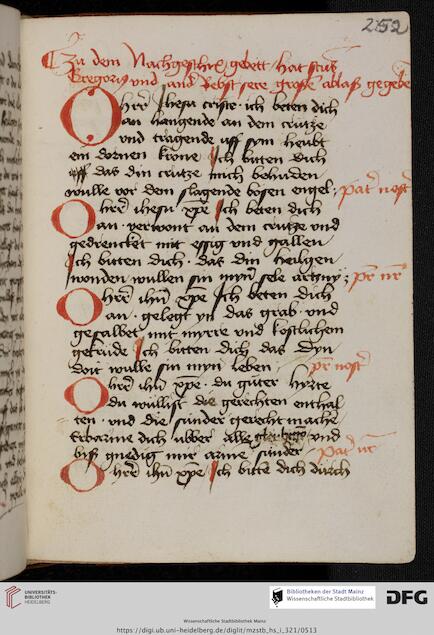 252
Zu dem Nachgeschrẽ gebett hat sctus
Gregoriꝯ und and̄ Bebst sere grosse ablaß gegebē
O herre ihesu criste · ich beten dich
an hangende an dem crutze
und tragende uff dym heubt
ein dornen krone Ich bitten dich
das din crutze mich behuden
wulle vor dem slagende bosen engel · pat̄ nost̄
O herre ihesu xp̄e Ich beten dich
an · verwont an dem crutze und
gedrencket mit essig und gallen
Ich bitten dich · das din heilgen
wonden wullen sin myner sele artzny · pr̄ nr̄
O herre ihū xp̄e Ich beten dich
an · gelegt yn das grab · und
gesalbet mit myrre und kostlichem
gekrude Ich bitten dich das dyn
doit wulle sin myn leben · pr̄ nost̄
O herre ihū xp̄e · du guter hyrte
du wullist die gerechten enthal
ten · und die sunder gerecht mache
Erbarme dich ubber alle und
biß gnedig mir arme sunder pat̄ nr̄
O herre ihū xp̄e Ich bitte dich durch
UNIVERSITÄTS-
BIBLIOTHEK
HEIDELBERG
Bibliotheken der Stadt Mainz
Wissenschaftliche Stadtbibliothek
DFG
Wissenschaftliche Stadtbibliothek Mainz
https://digi.ub.uni-heidelberg.de/diglit/mzstb_hs_i_321/0513